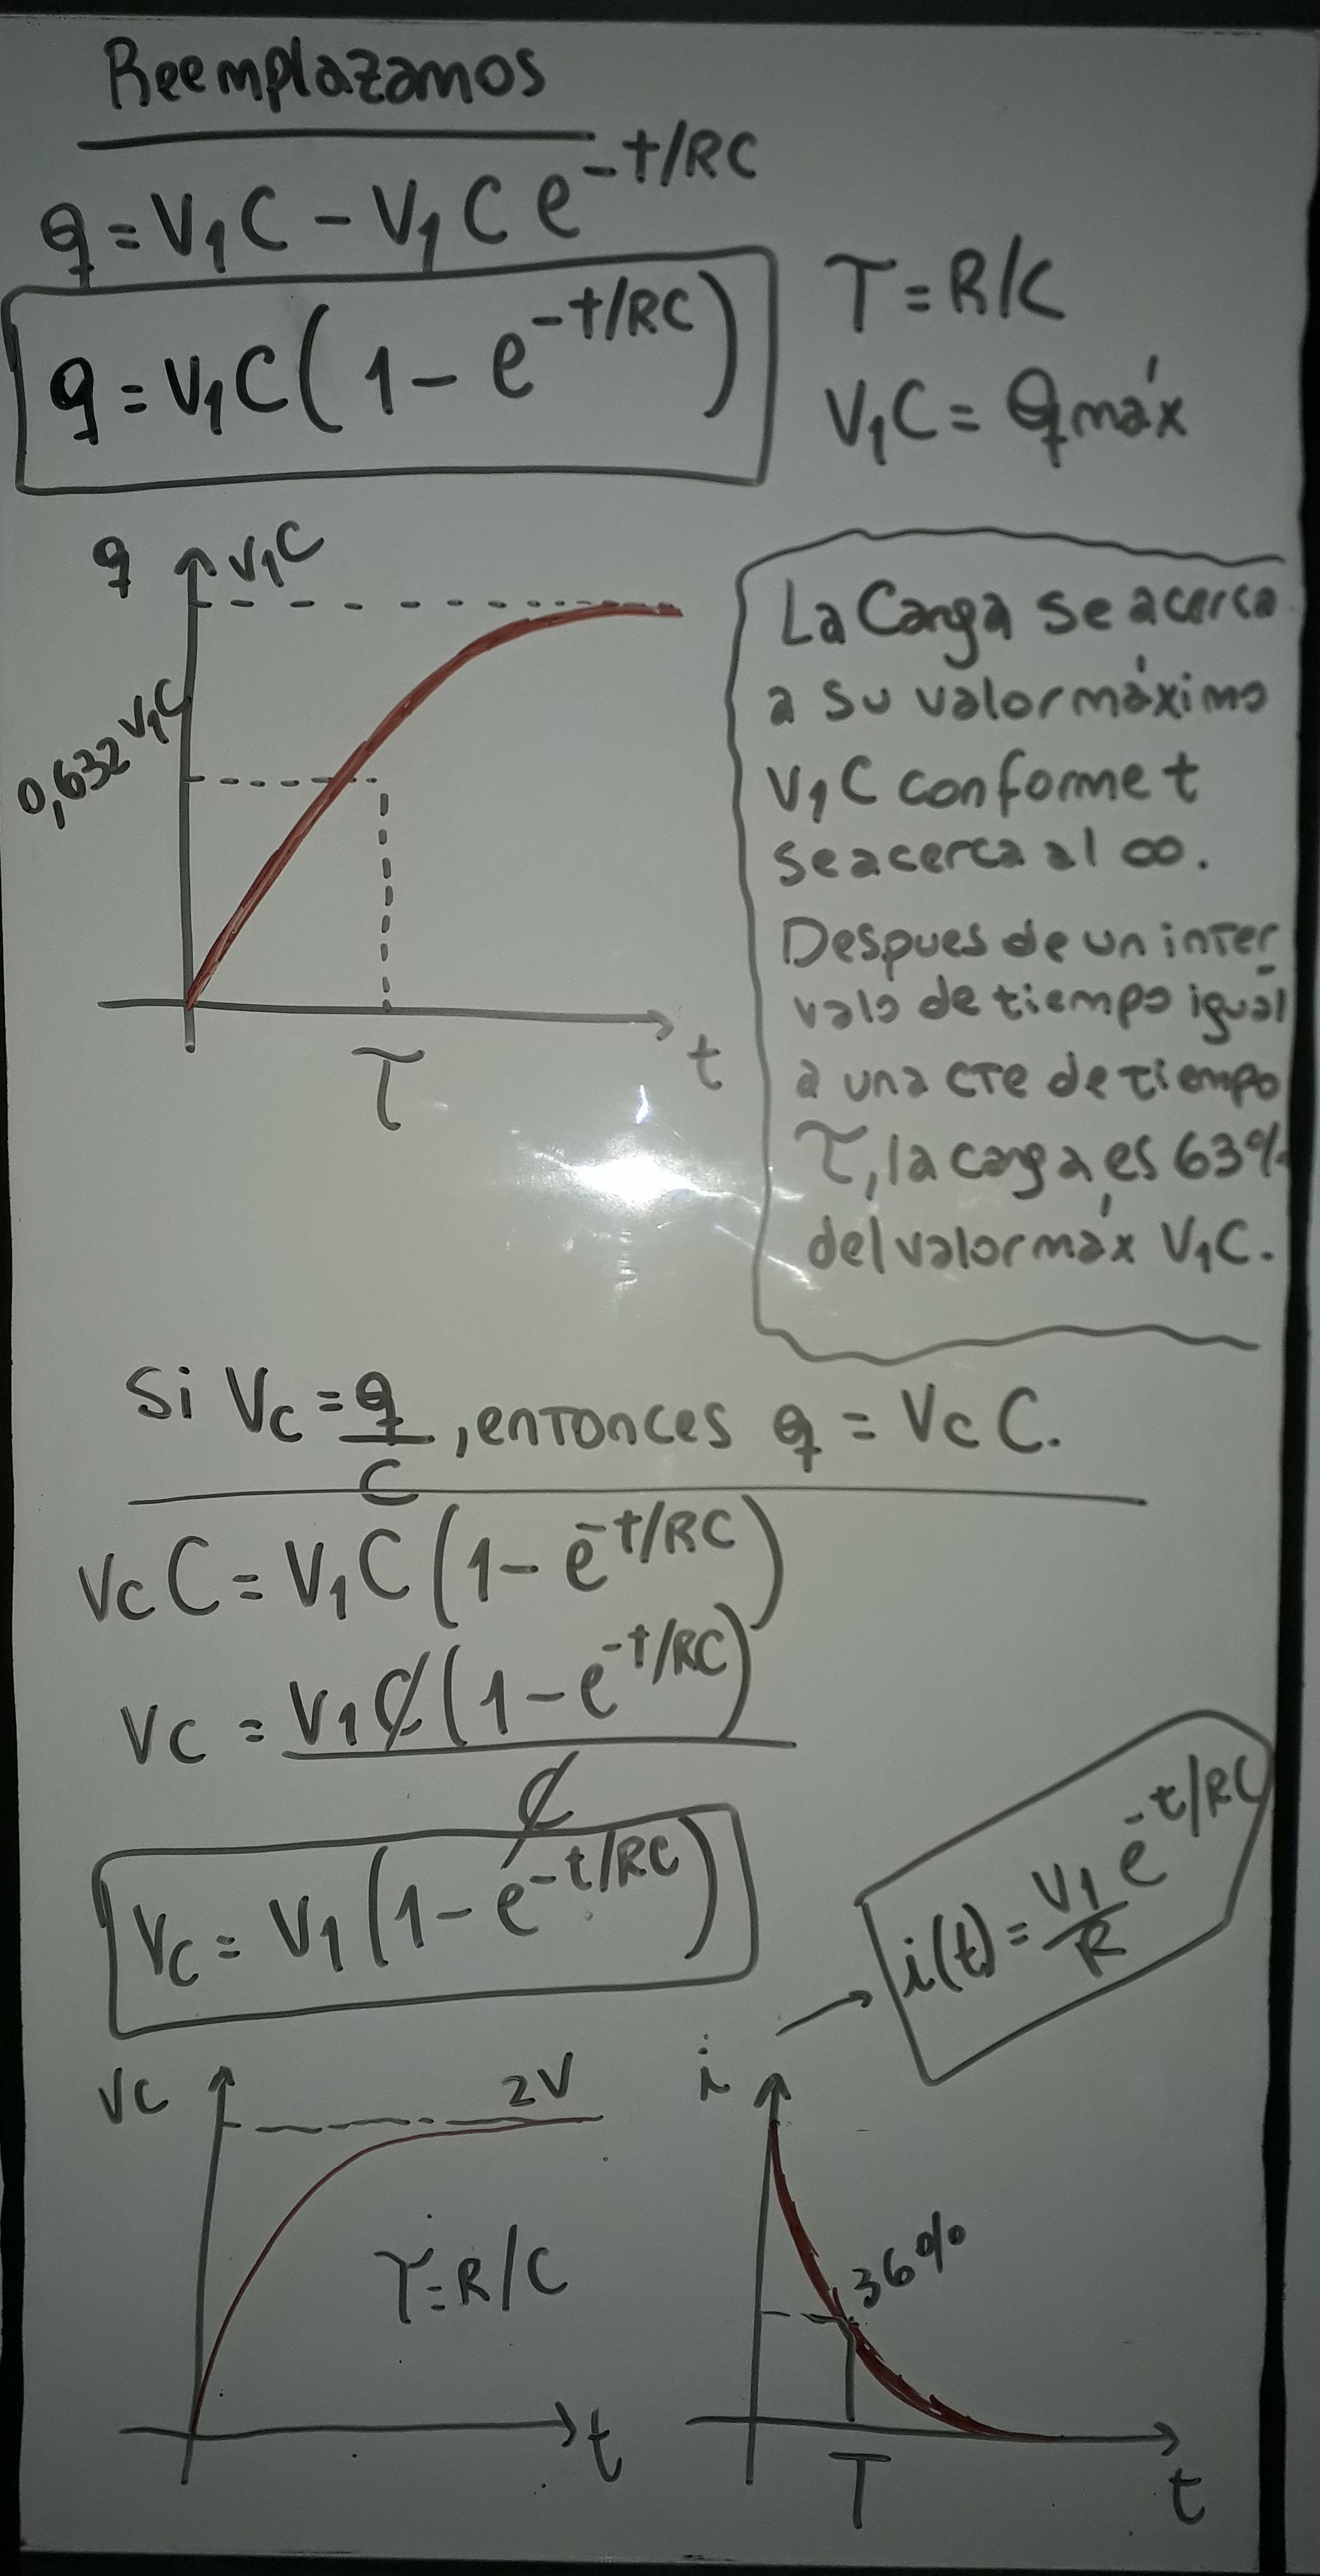 Reemplazamos
q = V₁C - V₁C e^-t/RC
q = V₁C ( 1 - e^-t/RC )
T = R/C
V₁C = qmáx
q
V₁C
0,632 V₁C
τ
t
La Carga se acerca
a su valor máximo
V₁C conforme t
se acerca al ∞.
Despues de un inter
valo de tiempo igual
a una cte de tiempo
τ, la carga es 63%
del valor máx V₁C.
Si Vc = q/C, entonces q = Vc C.
Vc C = V₁C ( 1 - e^-t/RC )
Vc = V₁C ( 1 - e^-t/RC ) / C
Vc = V₁ ( 1 - e^-t/RC )
i(t) = V₁/R e^-t/RC
Vc
2V
τ = R/C
t
i
36%
T
t